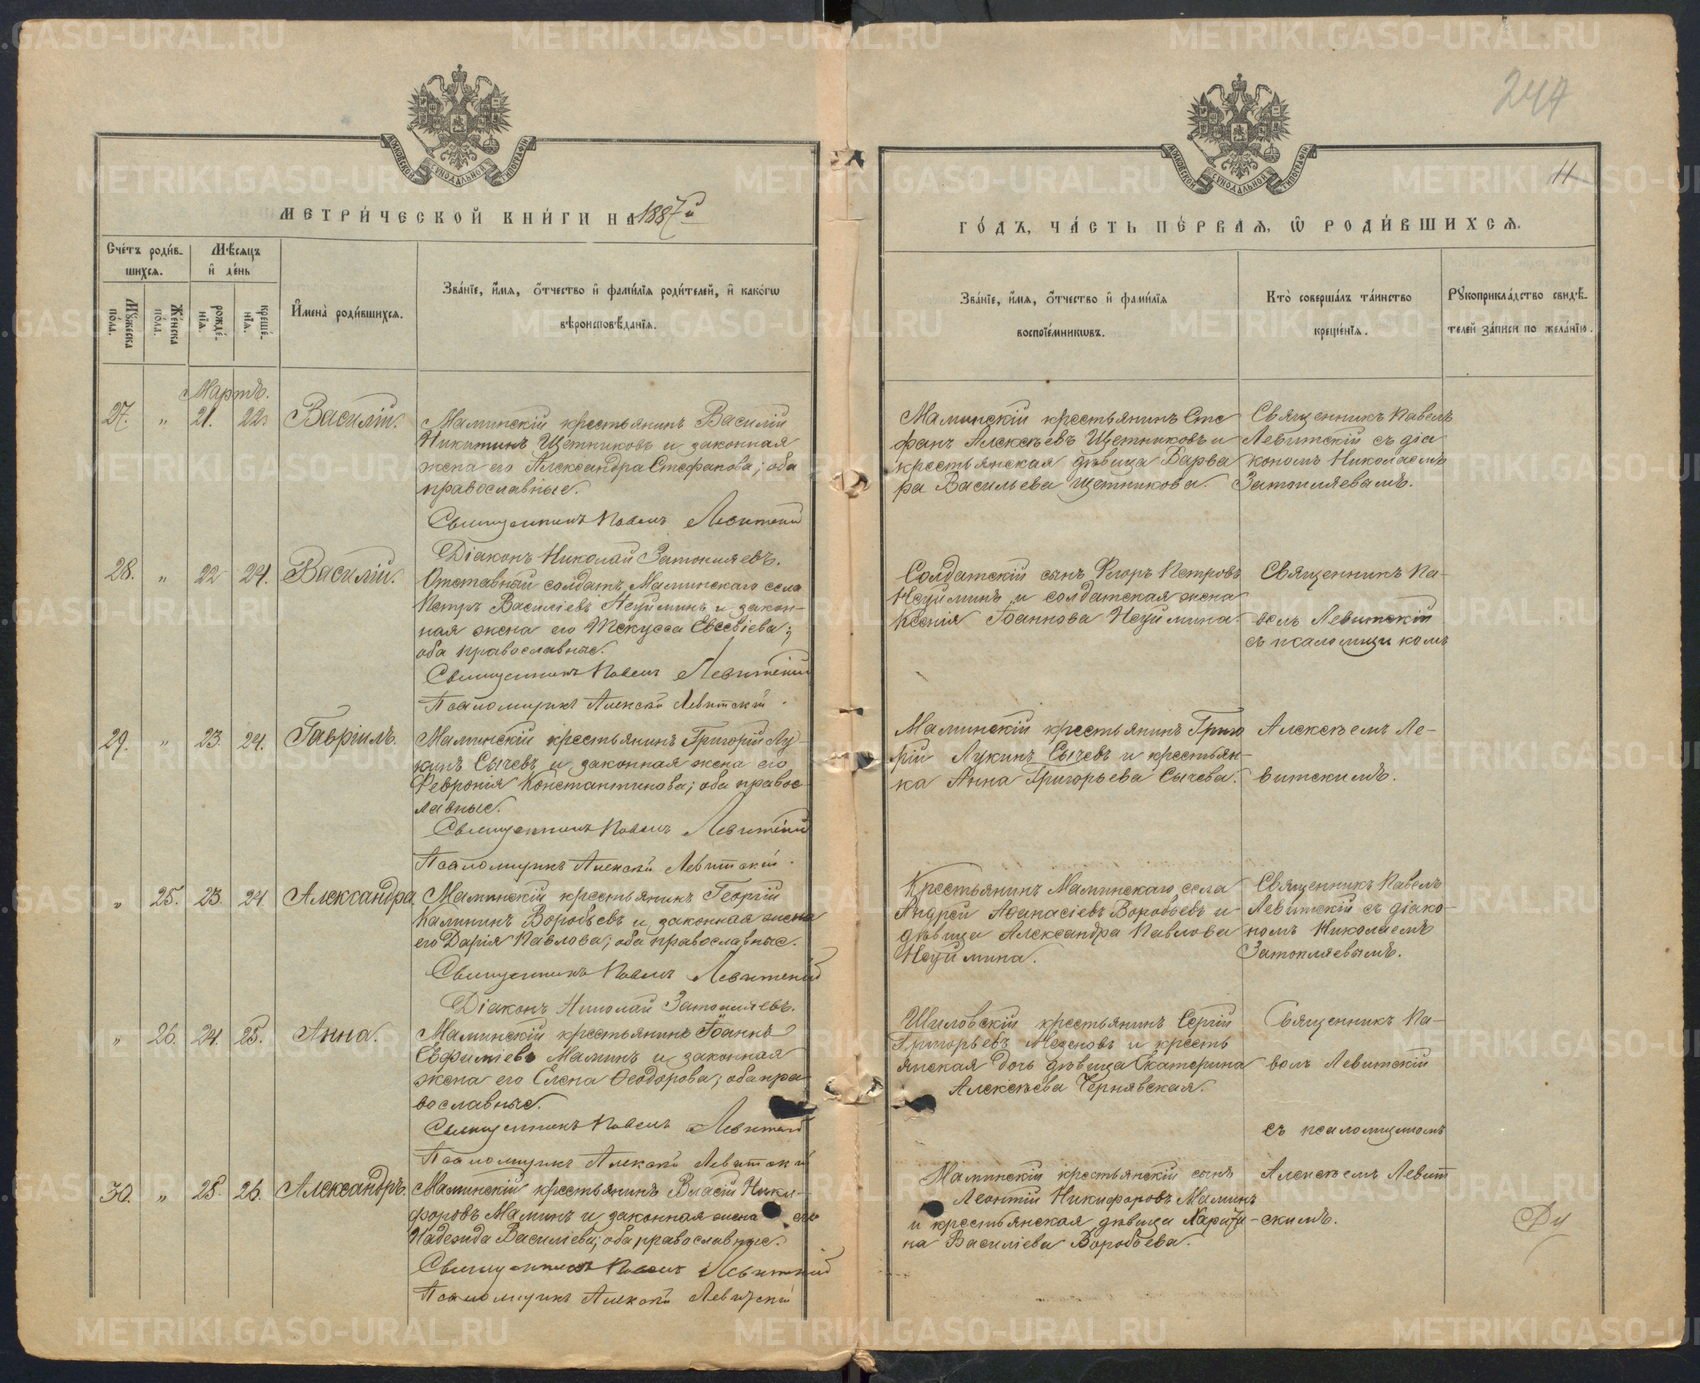 247
11
МЕТРИ́ЧЕСКОЙ КНИ́ГИ НА 1887й
ГО́ДЪ, ЧА́СТЬ ПЕ́РВАѦ, Ѽ РОДИ́ВШИХСѦ.
Сче́тъ роди́в-
шихсѧ.
Мѣ́сѧцъ
и҆ де́нь
Му́жеска
по́ла.
Же́нска
по́ла.
рожде́-
нїѧ.
креще́-
нїѧ.
И҆мена̀ роди́вшихсѧ.
Зва́нїе, и҆́мѧ, о҆́тчество и҆ фами́лїѧ роди́телей, и҆ како́гѡ
вѣроисповѣ́данїѧ.
Зва́нїе, и҆́мѧ, о҆́тчество и҆ фами́лїѧ
воспрїе́мникѡвъ.
Кто̀ соверша́лъ та́инство
креще́нїѧ.
Рꙋкоприкла́дство свидѣ́-
телей за́писи по жела́нїю.
Мартъ.
27. " 21. 22. Василій.
Маминскій крестьянинъ Василій
Никитинъ Щетниковъ и законная
жена его Александра Стефанова; оба
православные.
Священникъ Павелъ Левитскій
Діаконъ Николай Затопляевъ.
Маминскій крестьянинъ Сте
фанъ Алексѣевъ Щетниковъ и
крестьянская дѣвица Варва
ра Васильева Щетникова.
Священникъ Павелъ
Левитскій съ діа
кономъ Николаемъ
Затопляевымъ.
28. " 22 24. Василій.
Отставный солдатъ Маминскаго села
Петръ Василіевъ Неуйминъ и закон-
ная жена его Текусса Евсевіева;
оба православные.
Священникъ Павелъ Левитскій
Псаломщикъ Алексѣй Левитскій.
Солдатскій сынъ Егоръ Петровъ
Неуйминъ и солдатская жена
Ксенія Іоаннова Неуймина.
Священникъ Па-
велъ Левитскій
съ псаломщикомъ
29. " 23. 24. Гавріилъ.
Маминскій крестьянинъ Григорій Лу-
кинъ Сычевъ и законная жена его
Феврония Константинова; оба правос-
лавные.
Священникъ Павелъ Левитскій
Псаломщикъ Алексѣй Левитскій.
Маминскій крестьянинъ Григо
рій Лукинъ Сычевъ и крестьян-
ка Анна Григорьева Сычева.
Алексѣемъ Ле-
витскимъ.
" 25. 23. 24 Александра.
Маминскій крестьянинъ Георгій
Калининъ Воробьевъ и законная жена
его Дарія Павлова; оба православные.
Священникъ Павелъ Левитскій
Діаконъ Николай Затопляевъ.
Крестьянинъ Маминскаго села
Андрей Аѳанасіевъ Воробьевъ и
дѣвица Александра Павлова
Неуймина.
Священникъ Павелъ
Левитскій съ діако-
номъ Николаемъ
Затопляевымъ.
" 26. 24. 25. Анна.
Маминскій крестьянинъ Іоаннъ
Евфиміевъ Маминъ и законная
жена его Елена Ѳеодорова; оба пра-
вославные.
Священникъ Павелъ Левитскій
Псаломщикъ Алексѣй Левитскій
Шиловскій крестьянинъ Сергій
Григорьевъ и кресть
янская дочь дѣвица Екатерина
Алексѣева Чернявская.
Священникъ Па-
велъ Левитскій
съ псаломщикомъ
30. " 25. 26. Александръ.
Маминскій крестьянинъ Власій Ники-
форовъ Маминъ и законная жена его
Надежда Василіева; оба православные.
Священникъ Павелъ Левитскій
Псаломщикъ Алексѣй Левитскій
Маминскій крестьянскій сынъ
Леонтій Никифоровъ Маминъ
и крестьянская дѣвица Харити-
на Василіева Воробьева.
Алексѣемъ Левит
скимъ.
METRIKI.GASO-URAL.RU